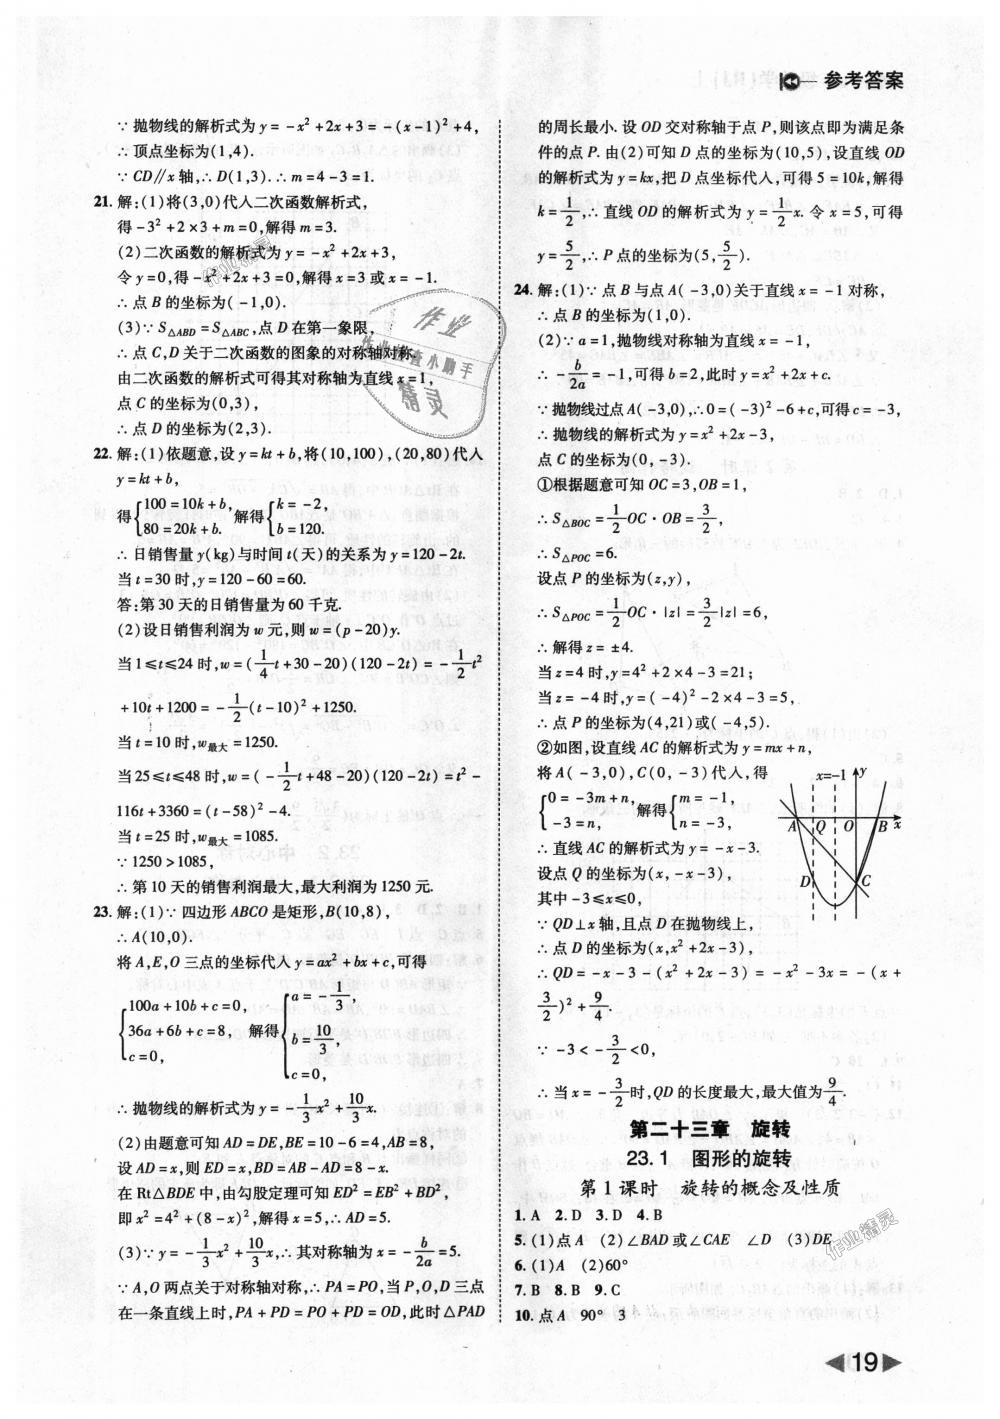 参考答案
∵抛物线的解析式为y=-x²+2x+3=-(x-1)²+4,
∴顶点坐标为(1,4).
∵CD∥x轴,∴D(1,3).∴m=4-3=1.
21.解:(1)将(3,0)代人二次函数解析式,
得-3²+2×3+m=0,解得m=3.
(2)二次函数的解析式为y=-x²+2x+3,
令y=0,得-x²+2x+3=0,解得x=3或x=-1.
∴点B的坐标为(-1,0).
(3)∵S△ABD=S△ABC,点D在第一象限,
∴点C,D关于二次函数的图象的对称轴对称.
由二次函数的解析式可得其对称轴为直线x=1,
点C的坐标为(0,3),
∴点D的坐标为(2,3).
22.解:(1)依题意,设y=kt+b,将(10,100),(20,80)代人
y=kt+b,
得{100=10k+b, 80=20k+b. 解得{k=-2, b=120.
∴日销售量y(kg)与时间t(天)的关系为y=120-2t.
当t=30时,y=120-60=60.
答:第30天的日销售量为60千克.
(2)设日销售利润为w元,则w=(p-20)y.
当1≤t≤24时,w=(1/4t+30-20)(120-2t)=-1/2t²
+10t+1200=-1/2(t-10)²+1250.
当t=10时,w最大=1250.
当25≤t≤48时,w=(-1/2t+48-20)(120-2t)=t²-
116t+3360=(t-58)²-4.
当t=25时,w最大=1085.
∵1250>1085,
∴第10天的销售利润最大,最大利润为1250元.
23.解:(1)∵四边形ABCO是矩形,B(10,8),
∴A(10,0).
将A,E,O三点的坐标代人y=ax²+bx+c,可得
{100a+10b+c=0, 36a+6b+c=8, c=0, 解得{a=-1/3, b=10/3, c=0,
∴抛物线的解析式为y=-1/3x²+10/3x.
(2)由题意可知AD=DE,BE=10-6=4,AB=8,
设AD=x,则ED=x,BD=AB-AD=8-x.
在Rt△BDE中,由勾股定理可知ED²=EB²+BD²,
即x²=4²+(8-x)²,解得x=5,∴AD=5.
(3)∵y=-1/3x²+10/3x,∴其对称轴为x=-b/2a=5.
∵A,O两点关于对称轴对称,∴PA=PO,当P,O,D三点
在一条直线上时,PA+PD=PO+PD=OD,此时△PAD
的周长最小.设OD交对称轴于点P,则该点即为满足条
件的点P.由(2)可知D点的坐标为(10,5),设直线OD
的解析式为y=kx,把D点坐标代人,可得5=10k,解得
k=1/2,∴直线OD的解析式为y=1/2x.令x=5,可得
y=5/2,∴P点的坐标为(5,5/2).
24.解:(1)∵点B与点A(-3,0)关于直线x=-1对称,
∴点B的坐标为(1,0).
(2)∵a=1,抛物线对称轴为直线x=-1,
∴-b/2a=-1,可得b=2,此时y=x²+2x+c.
∵抛物线过点A(-3,0),∴0=(-3)²-6+c,可得c=-3,
∴抛物线的解析式为y=x²+2x-3,
点C的坐标为(0,-3).
①根据题意可知OC=3,OB=1,
∴S△BOC=1/2OC·OB=3/2,
∴S△POC=6.
设点P的坐标为(z,y),
∴S△POC=1/2OC·|z|=3/2|z|=6,
∴解得z=±4.
当z=4时,y=4²+2×4-3=21;
当z=-4时,y=(-4)²-2×4-3=5,
∴点P的坐标为(4,21)或(-4,5).
②如图,设直线AC的解析式为y=mx+n,
将A(-3,0),C(0,-3)代人,得
{0=-3m+n, -3=n, 解得{m=-1, n=-3,
∴直线AC的解析式为y=-x-3.
设点Q的坐标为(x,-x-3),
其中-3≤x≤0,
x=-1 y
A Q O B x
D C
∵QD⊥x轴,且点D在抛物线上,
∴点D的坐标为(x,x²+2x-3),
∴QD=-x-3-(x²+2x-3)=-x²-3x=-(x+
3/2)²+9/4.
∵-3<-3/2<0,
∴当x=-3/2时,QD的长度最大,最大值为9/4.
第二十三章 旋转
23.1 图形的旋转
第1课时 旋转的概念及性质
1.A 2.D 3.D 4.B
5.(1)点A (2)∠BAD或∠CAE ∠D (3)DE
6.(1)A (2)60°
7.B 8.B 9.C
10.点A 90° 3
19
作业精灵
作业
精灵
作业精灵